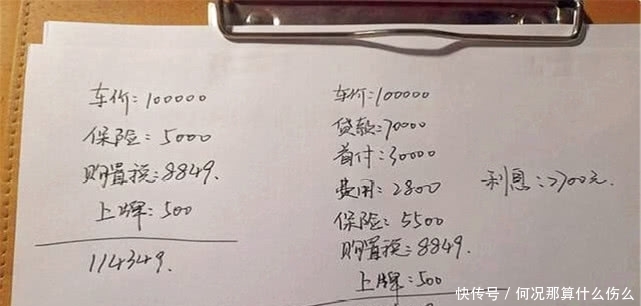 车价:100000
保险:5000
购置税:8849.
上牌:500
114349.
车价:100000
贷款:70000
首付:30000
费用:2800
利息:2700元.
保险:5500
购置税:8849.
上牌:500
快传号/何况那算什么伤么